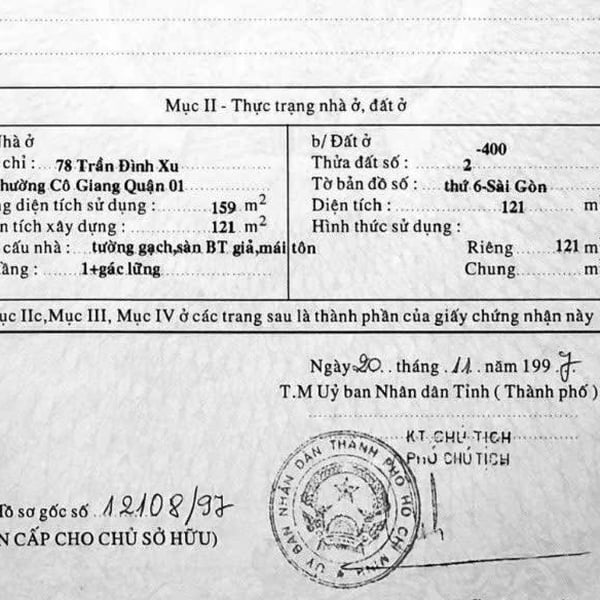 Mục II - Thực trạng nhà ở, đất ở
hà ở
chỉ : 78 Trần Đình Xu
hường Cô Giang Quận 01
g diện tích sử dụng : 159 m2
n tích xây dựng : 121 m2
cấu nhà : tường gạch,sàn BT giả,mái tôn
ầng : 1+gác lững
b/ Đất ở -400
Thửa đất số : 2
Tờ bản đồ số : thứ 6-Sài Gòn
Diện tích : 121 m
Hình thức sử dụng :
Riêng 121 m
Chung m
ục IIc,Mục III, Mục IV ở các trang sau là thành phần của giấy chứng nhận này
Ngày 20 tháng 11 năm 1997
T.M Uỷ ban Nhân dân Tỉnh ( Thành phố )
KT CHỦ TỊCH
PHÓ CHỦ TỊCH
ỦY BAN NHÂN DÂN THÀNH PHỐ HỒ CHÍ MINH
ồ sơ gốc số 12108/97
N CẤP CHO CHỦ SỞ HỮU)